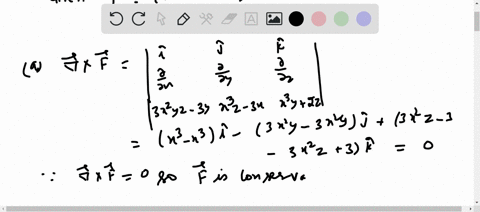 î ĵ k̂
(a) ∇⃗ × F⃗ = | ∂/∂x ∂/∂y ∂/∂z |
3x²yz-3y x³z-3x x³y+2z
= (x³-x³) î - (3x²y-3x²y) ĵ + (3x²z-3
- 3x²z+3) k̂ = 0
∵ ∇⃗ × F⃗ = 0 so F⃗ is conserva